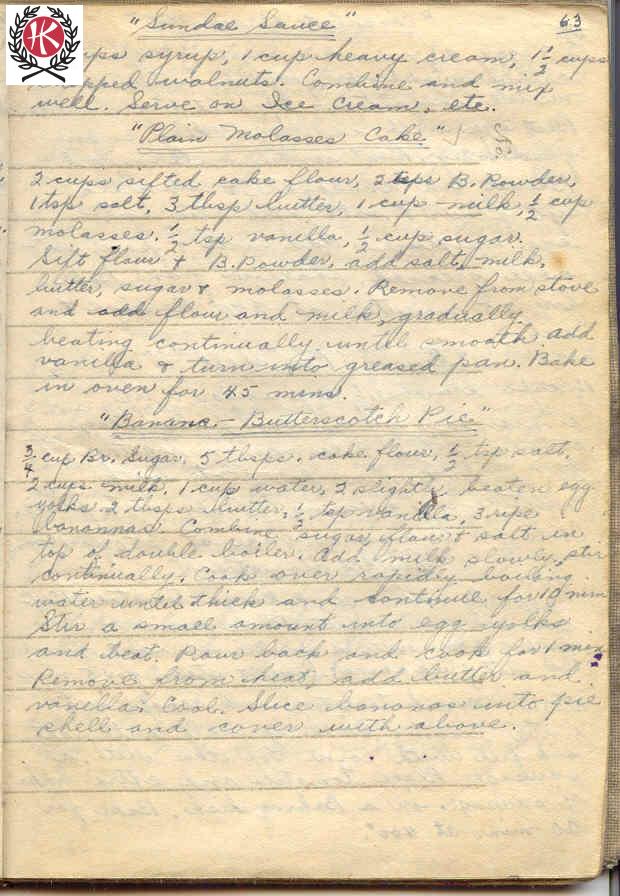 "Sundae Sauce"
63
syrup, 1 cup heavy cream, 1 1/2 cups
walnuts. Combine and mix
well. Serve on Ice Cream, etc.
"Plain Molasses Cake"
No.
2 cups sifted cake flour, 2 tsps B. Powder,
1 tsp salt, 3 tbsp butter, 1 cup milk, 1/2 cup
molasses. 1/2 tsp vanilla, 1/2 cup sugar.
Sift flour + B. Powder, add salt, milk,
butter, sugar & molasses. Remove from stove
and add flour and milk, gradually
beating continually until smooth add
vanilla & turn into greased pan. Bake
in oven for 45 mins.
"Banana-Butterscotch Pie"
3/4 cup Br. Sugar, 5 tbsps. cake flour, 1/2 tsp salt,
2 cups milk, 1 cup water, 2 slightly beaten egg
yolks 2 tbsps butter, 1/2 tsp vanilla, 3 ripe
banannas. Combine sugar, flour & salt in
top of double boiler. Add milk slowly, stir
continually. Cook over rapidly boiling
water until thick and continue for 10 min
Stir a small amount into egg yolks
and beat. Pour back and cook for 1 min
Remove from heat, add butter and
vanilla. Cool. Slice bananas into pie
shell and cover with above.
HK